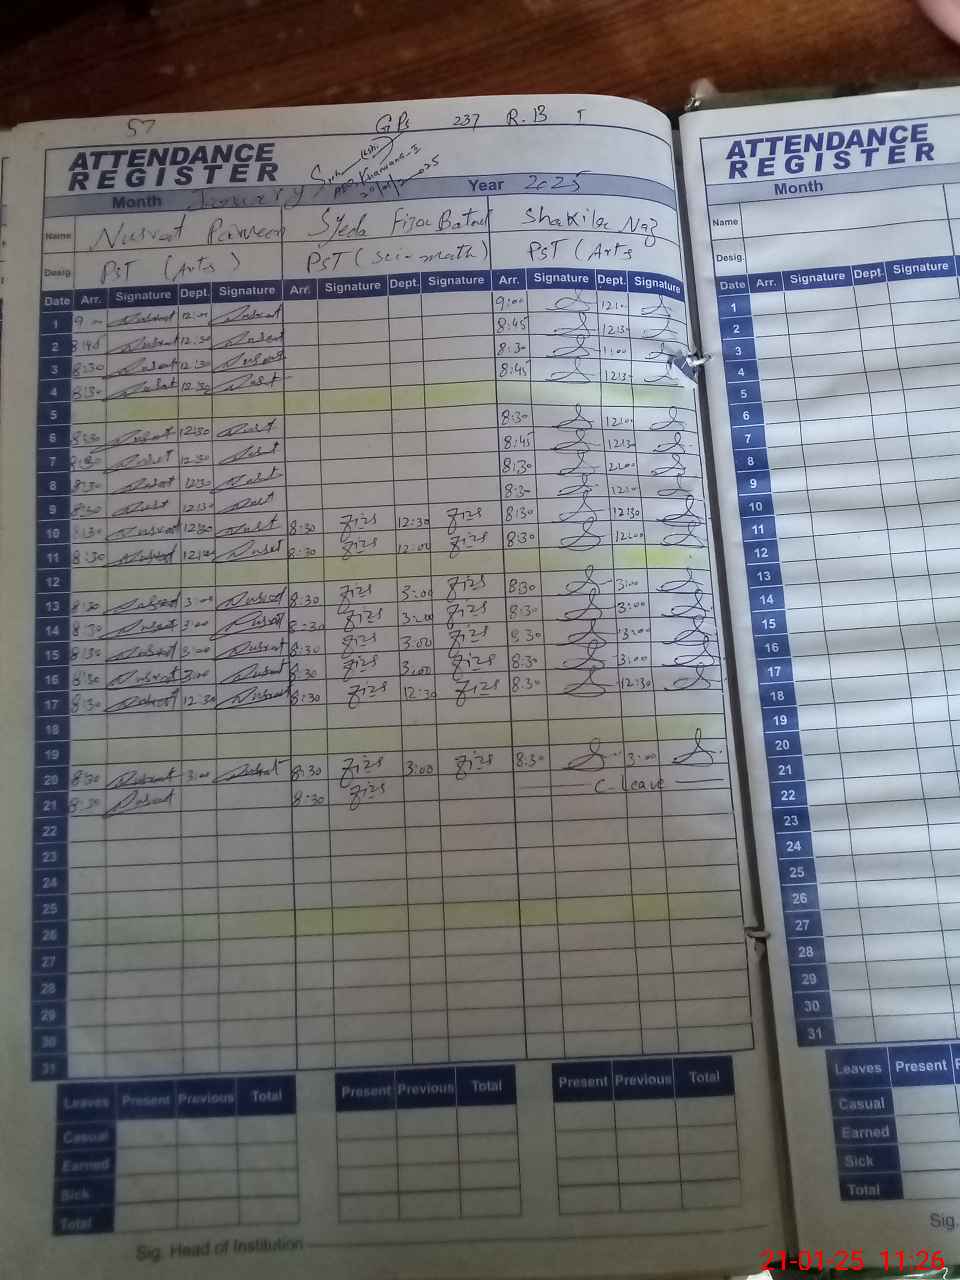 57 GPS 237 R.B
ATTENDANCE
REGISTER
Month January Year 2025
Name Nusrat Parveen Syeda Fiza Batool Shakila Naz
Desig. PST (Arts) PST (Sci-math) PST (Arts
Date Arr. Signature Dept. Signature Arr. Signature Dept. Signature Arr. Signature Dept. Signature
1 9:00 Nusrat 12:00 Nusrat 9:00 12:00
2 8:45 Nusrat 12:30 Nusrat 8:45 12:30
3 8:30 Nusrat 12:30 Nusrat 8:30 1:00
4 8:30 Nusrat 12:30 Nusrat 8:45 12:30
5
6 8:30 Nusrat 12:30 Nusrat 8:30 12:00
7 8:30 Nusrat 12:30 Nusrat 8:45 12:30
8 8:30 Nusrat 12:30 Nusrat 8:30
9 8:30 Nusrat 12:30 Nusrat 8:30
10 8:30 Nusrat 12:30 Nusrat 8:30 Fiza 12:30 Fiza 8:30 12:30
11 8:30 Nusrat 12:00 Nusrat 8:30 Fiza 12:00 Fiza 8:30 12:00
12
13 8:30 Nusrat 3:00 Nusrat 8:30 Fiza 3:00 Fiza 8:30 3:00
14 8:30 Nusrat 3:00 Nusrat 8:30 Fiza 3:00 Fiza 8:30 3:00
15 8:30 Nusrat 3:00 Nusrat 8:30 Fiza 3:00 Fiza 8:30 3:00
16 8:30 Nusrat 3:00 Nusrat 8:30 Fiza 3:00 Fiza 8:30 3:00
17 8:30 Nusrat 12:30 Nusrat 8:30 Fiza 12:30 Fiza 8:30 12:30
18
19
20 8:30 Nusrat 3:00 Nusrat 8:30 Fiza 3:00 Fiza 8:30 3:00
21 8:30 Nusrat 8:30 Fiza C-Leave
22
23
24
25
26
27
28
29
30
31
Leaves Present Previous Total Present Previous Total Present Previous Total
Casual
Earned
Sick
Total
Sig. Head of Institution
ATTENDANCE
REGISTER
Month
Name
Desig.
Date Arr. Signature Dept. Signature
1
2
3
4
5
6
7
8
9
10
11
12
13
14
15
16
17
18
19
20
21
22
23
24
25
26
27
28
29
30
31
Leaves Present
Casual
Earned
Sick
Total
Sig.
21-01-25 11:26